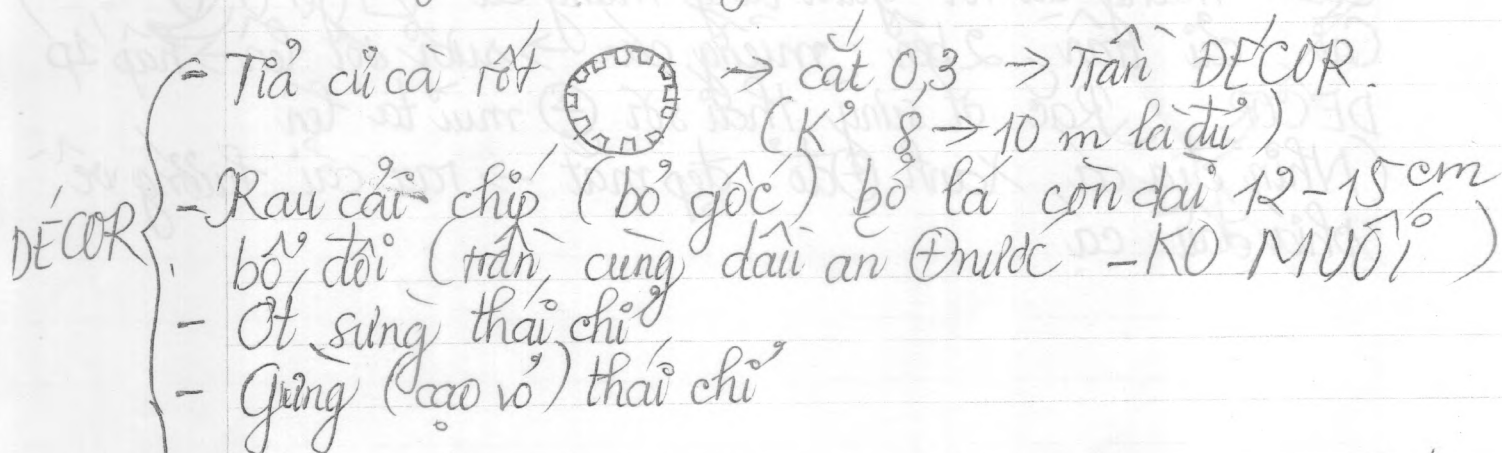 - Tỉa củ cà rốt → cắt 0,3 → Trần DÉCOR.
(K° 8 → 10 m là đủ)
DÉCOR
- Rau cải chíp (bỏ gốc) bỏ lá còn dài 12-15 cm
bổ đôi (trần cùng dầu ăn ⊕ nước - KO MUỐI)
- Ớt sừng thái chỉ
- Gừng (cạo vỏ) thái chỉ